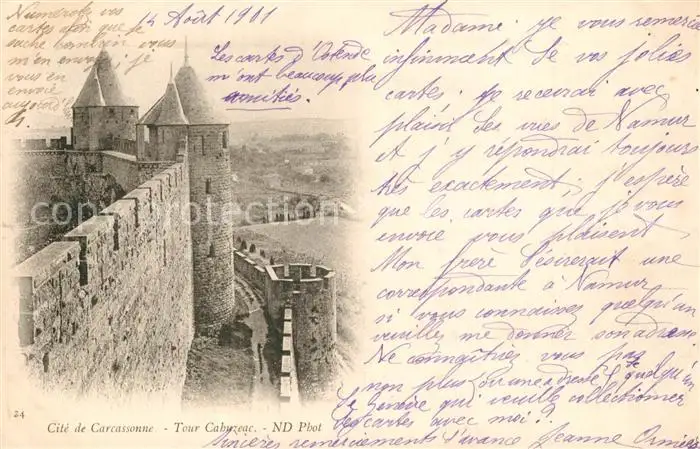 Numérotez vos
cartes afin que je
sache combien
vous
m'en envoyez. Je
vous en
envoie
aujourd'hui
14 Août 1901
Les cartes d'Ostende
m'ont beaucoup plu
amitiés.
Madame. je vous remercie
infiniment de vos jolies
cartes. Je recevrai avec
plaisir des vues de Namur
et j'y répondrai toujours
très exactement; j'espère
que les cartes que je vous
envoie vous plaisent.
Mon frère désirerait une
correspondante à Namur
si vous connaissez quelqu'un
veuillez me donner son adresse.
Ne connaîtriez vous pas
non plus une adresse de quelqu'un
de Genève qui veuille collectionner
des cartes avec moi?
Sincères remerciements d'avance Jeanne
24
Cité de Carcassonne. - Tour Cahuzac. - ND Phot
copyright protection